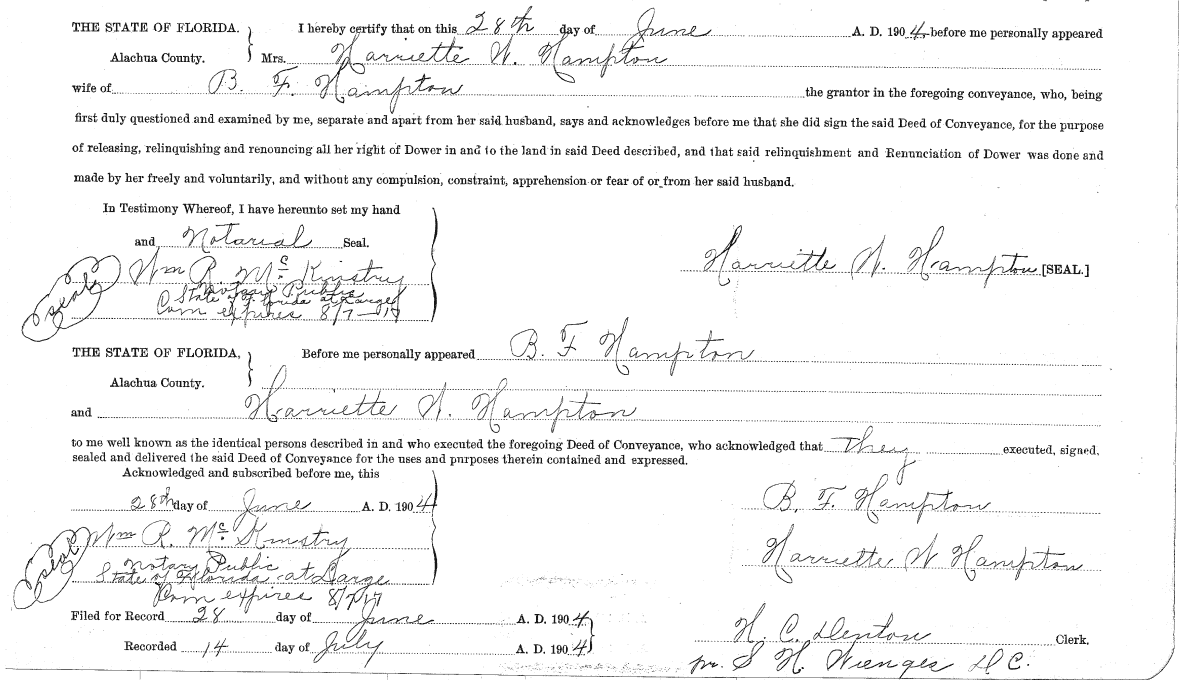 THE STATE OF FLORIDA. I hereby certify that on this 28th day of June A. D. 1904 before me personally appeared
Alachua County. Mrs. Harriette W. Hampton
wife of B. F. Hampton the grantor in the foregoing conveyance, who, being
first duly questioned and examined by me, separate and apart from her said husband, says and acknowledges before me that she did sign the said Deed of Conveyance, for the purpose
of releasing, relinquishing and renouncing all her right of Dower in and to the land in said Deed described, and that said relinquishment and Renunciation of Dower was done and
made by her freely and voluntarily, and without any compulsion, constraint, apprehension or fear of or from her said husband.
In Testimony Whereof, I have hereunto set my hand
and Notarial Seal.
Harriette W. Hampton [SEAL.]
Seal Wm R. Mc Kinstry
Notary Public
State of Florida at Large
Com expires 8/7-
THE STATE OF FLORIDA, Before me personally appeared B. F Hampton
Alachua County.
and Harriette W. Hampton
to me well known as the identical persons described in and who executed the foregoing Deed of Conveyance, who acknowledged that they executed, signed,
sealed and delivered the said Deed of Conveyance for the uses and purposes therein contained and expressed.
Acknowledged and subscribed before me, this
28th day of June A. D. 1904
B. F. Hampton
Seal Wm R. Mc Kinstry
Harriette W Hampton
Notary Public
State of Florida at Large
Com expires 8/7
Filed for Record 28 day of June A. D. 1904
H. C. Denton Clerk.
Recorded 14 day of July A. D. 1904
pr. S H. Wienges D C.